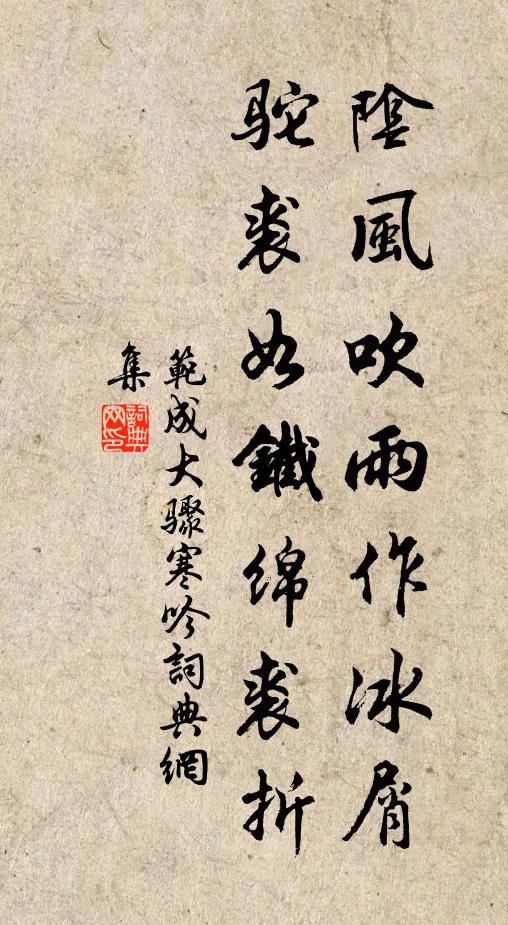 陰風吹雨作冰屑
駝裘如鐵綿裘折
範成大驟寒吟詞典網
集
詞典
网印